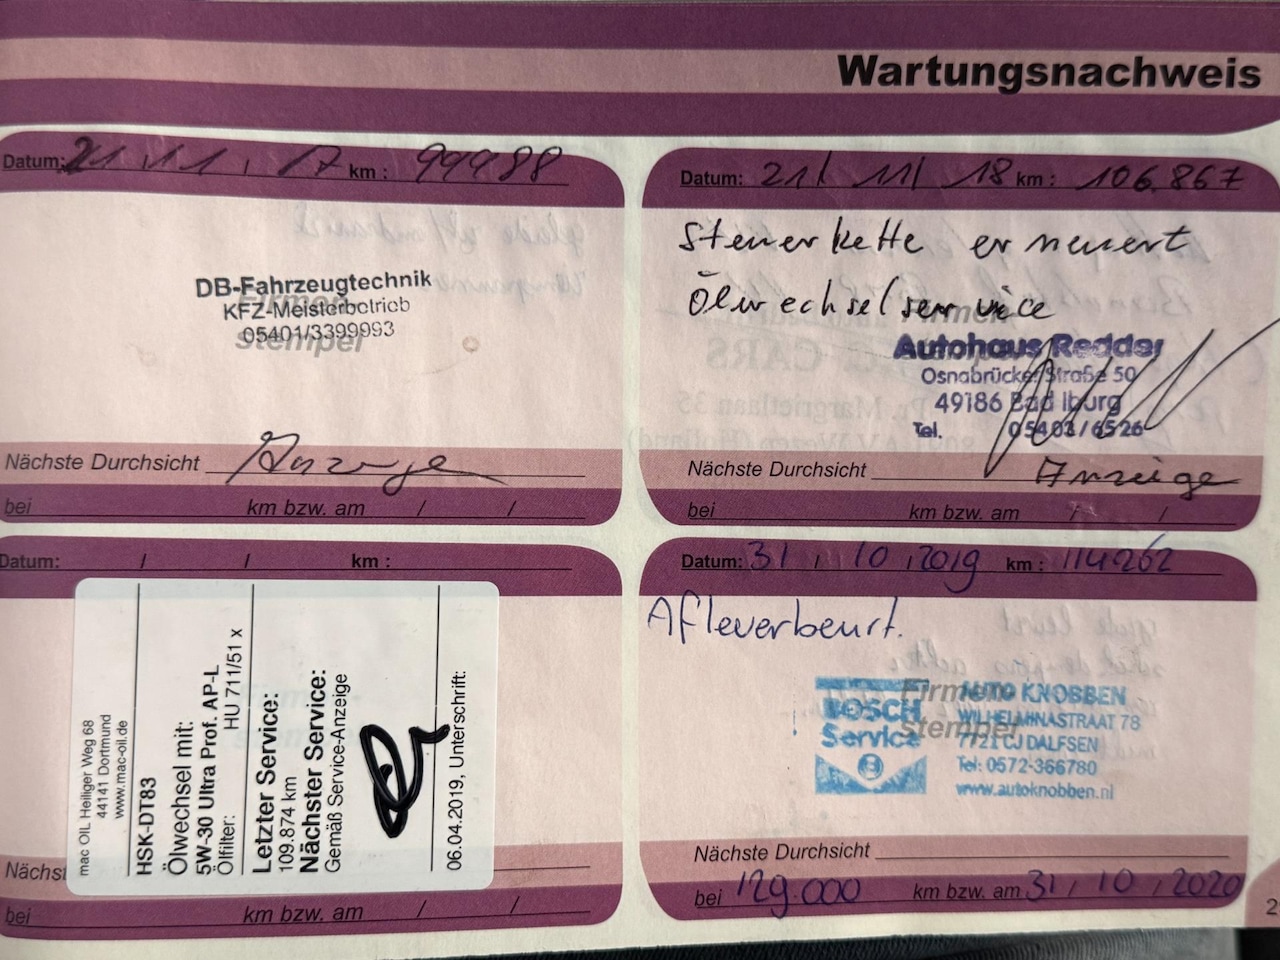 Wartungsnachweis
Datum: 21 / 11 / 17 km : 99988
DB-Fahrzeugtechnik
KFZ-Meisterbetrieb
05401/3399093
Firmen-
stempel
Nächste Durchsicht Anzeige
bei km bzw. am / /
Datum: 21 / 11 / 18 km : 106.867
Steuerkette erneuert
Ölwechselservice
Firmen-
Autohaus Redder
Osnabrücker Straße 50
49186 Bad Iburg
Tel. 05403/6526
Nächste Durchsicht Anzeige
bei km bzw. am / /
Datum: / / km :
mac OIL Heiliger Weg 68
44141 Dortmund
www.mac-oil.de
HSK-DT83
Ölwechsel mit:
5W-30 Ultra Prof. AP-L
Ölfilter: HU 711/51 x
Letzter Service:
109.874 km
Nächster Service:
Gemäß Service-Anzeige
06.04.2019, Unterschrift:
Nächst
bei km bzw. am / /
Datum: 31 / 10 / 2019 km : 114262
Afleverbeurt.
Firmen-
stempel
BOSCH
Service
AUTO KNOBBEN
WILHELMINASTRAAT 78
7721 CJ DALFSEN
Tel: 0572-366780
www.autoknobben.nl
Nächste Durchsicht
bei 129.000 km bzw. am 31 / 10 / 2020
2